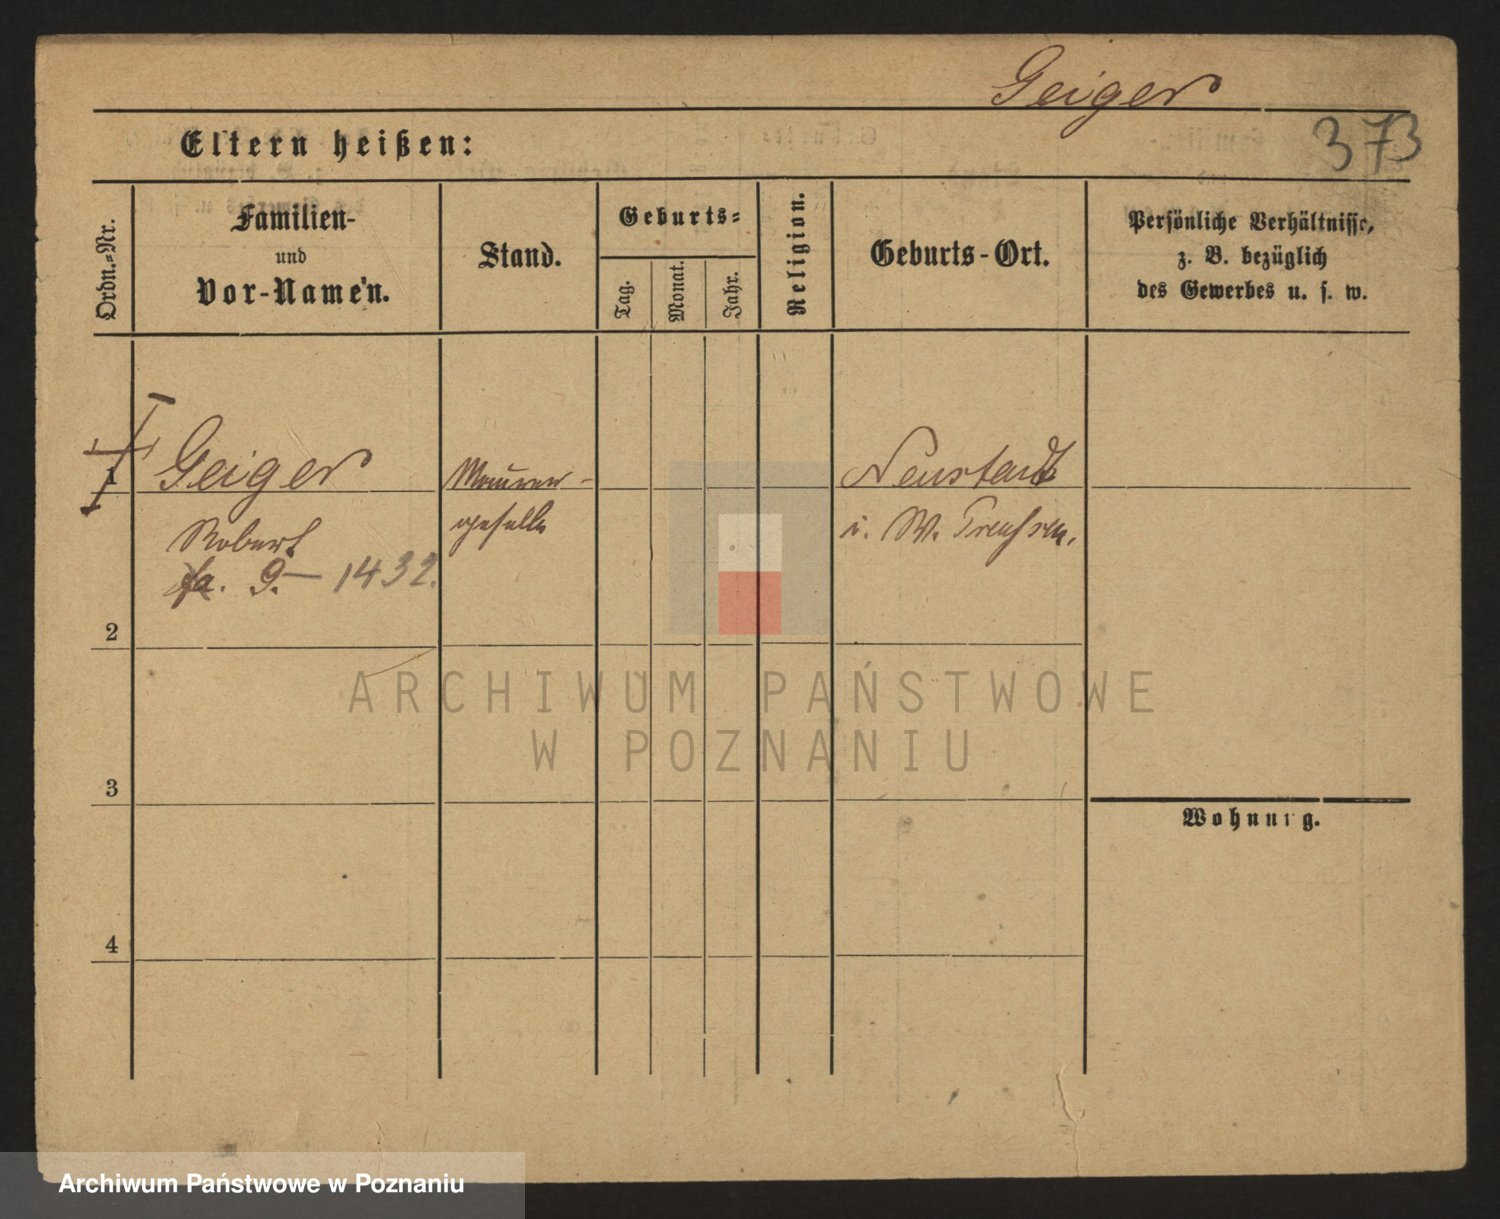 Geiger
373
Eltern heißen:
Ordn.-Nr.
Familien-
und
Vor-Namen.
Stand.
Geburts-
Tag.
Monat.
Jahr.
Religion.
Geburts-Ort.
Persönliche Verhältnisse,
z. B. bezüglich
des Gewerbes u. s. w.
1
Geiger
Robert
fa. 9.— 1432.
Maurer-
geselle
Neustadt
i. W. Preußen.
2
3
4
Wohnung.
ARCHIWUM PAŃSTWOWE
W POZNANIU
Archiwum Państwowe w Poznaniu